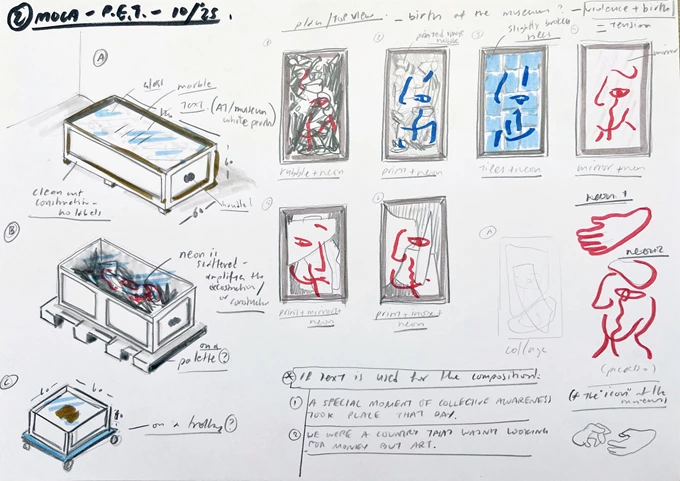 ② MOCA - P.E.T. - 10/'25.
plan / TOP VIEW
- birth of the museum?
- (violence + birth)
= Tension
A
glass
marble
TEXT (AT/museum
60
60
handle!
clean cut
construction -
no labels
①
rubble + neon
print + neon
③
slightly broken
tiles + neon
mirror
mirror + neon
B
neon is
scattered -
amplifies the
deconstruction/
or construction
on a
palette ?
print + mirror +
neon
print + mirror +
neon
A
collage
neon 1
neon 2
(picasso)
C
60
60
- on a trolley ?
* IF TEXT is used for the composition:
① A SPECIAL MOMENT OF COLLECTIVE AWARENESS
TOOK PLACE THAT DAY.
② WE WERE A COUNTRY THAT WASN'T LOOKING
FOR MONEY BUT ART.
of the "icon" of the
museum